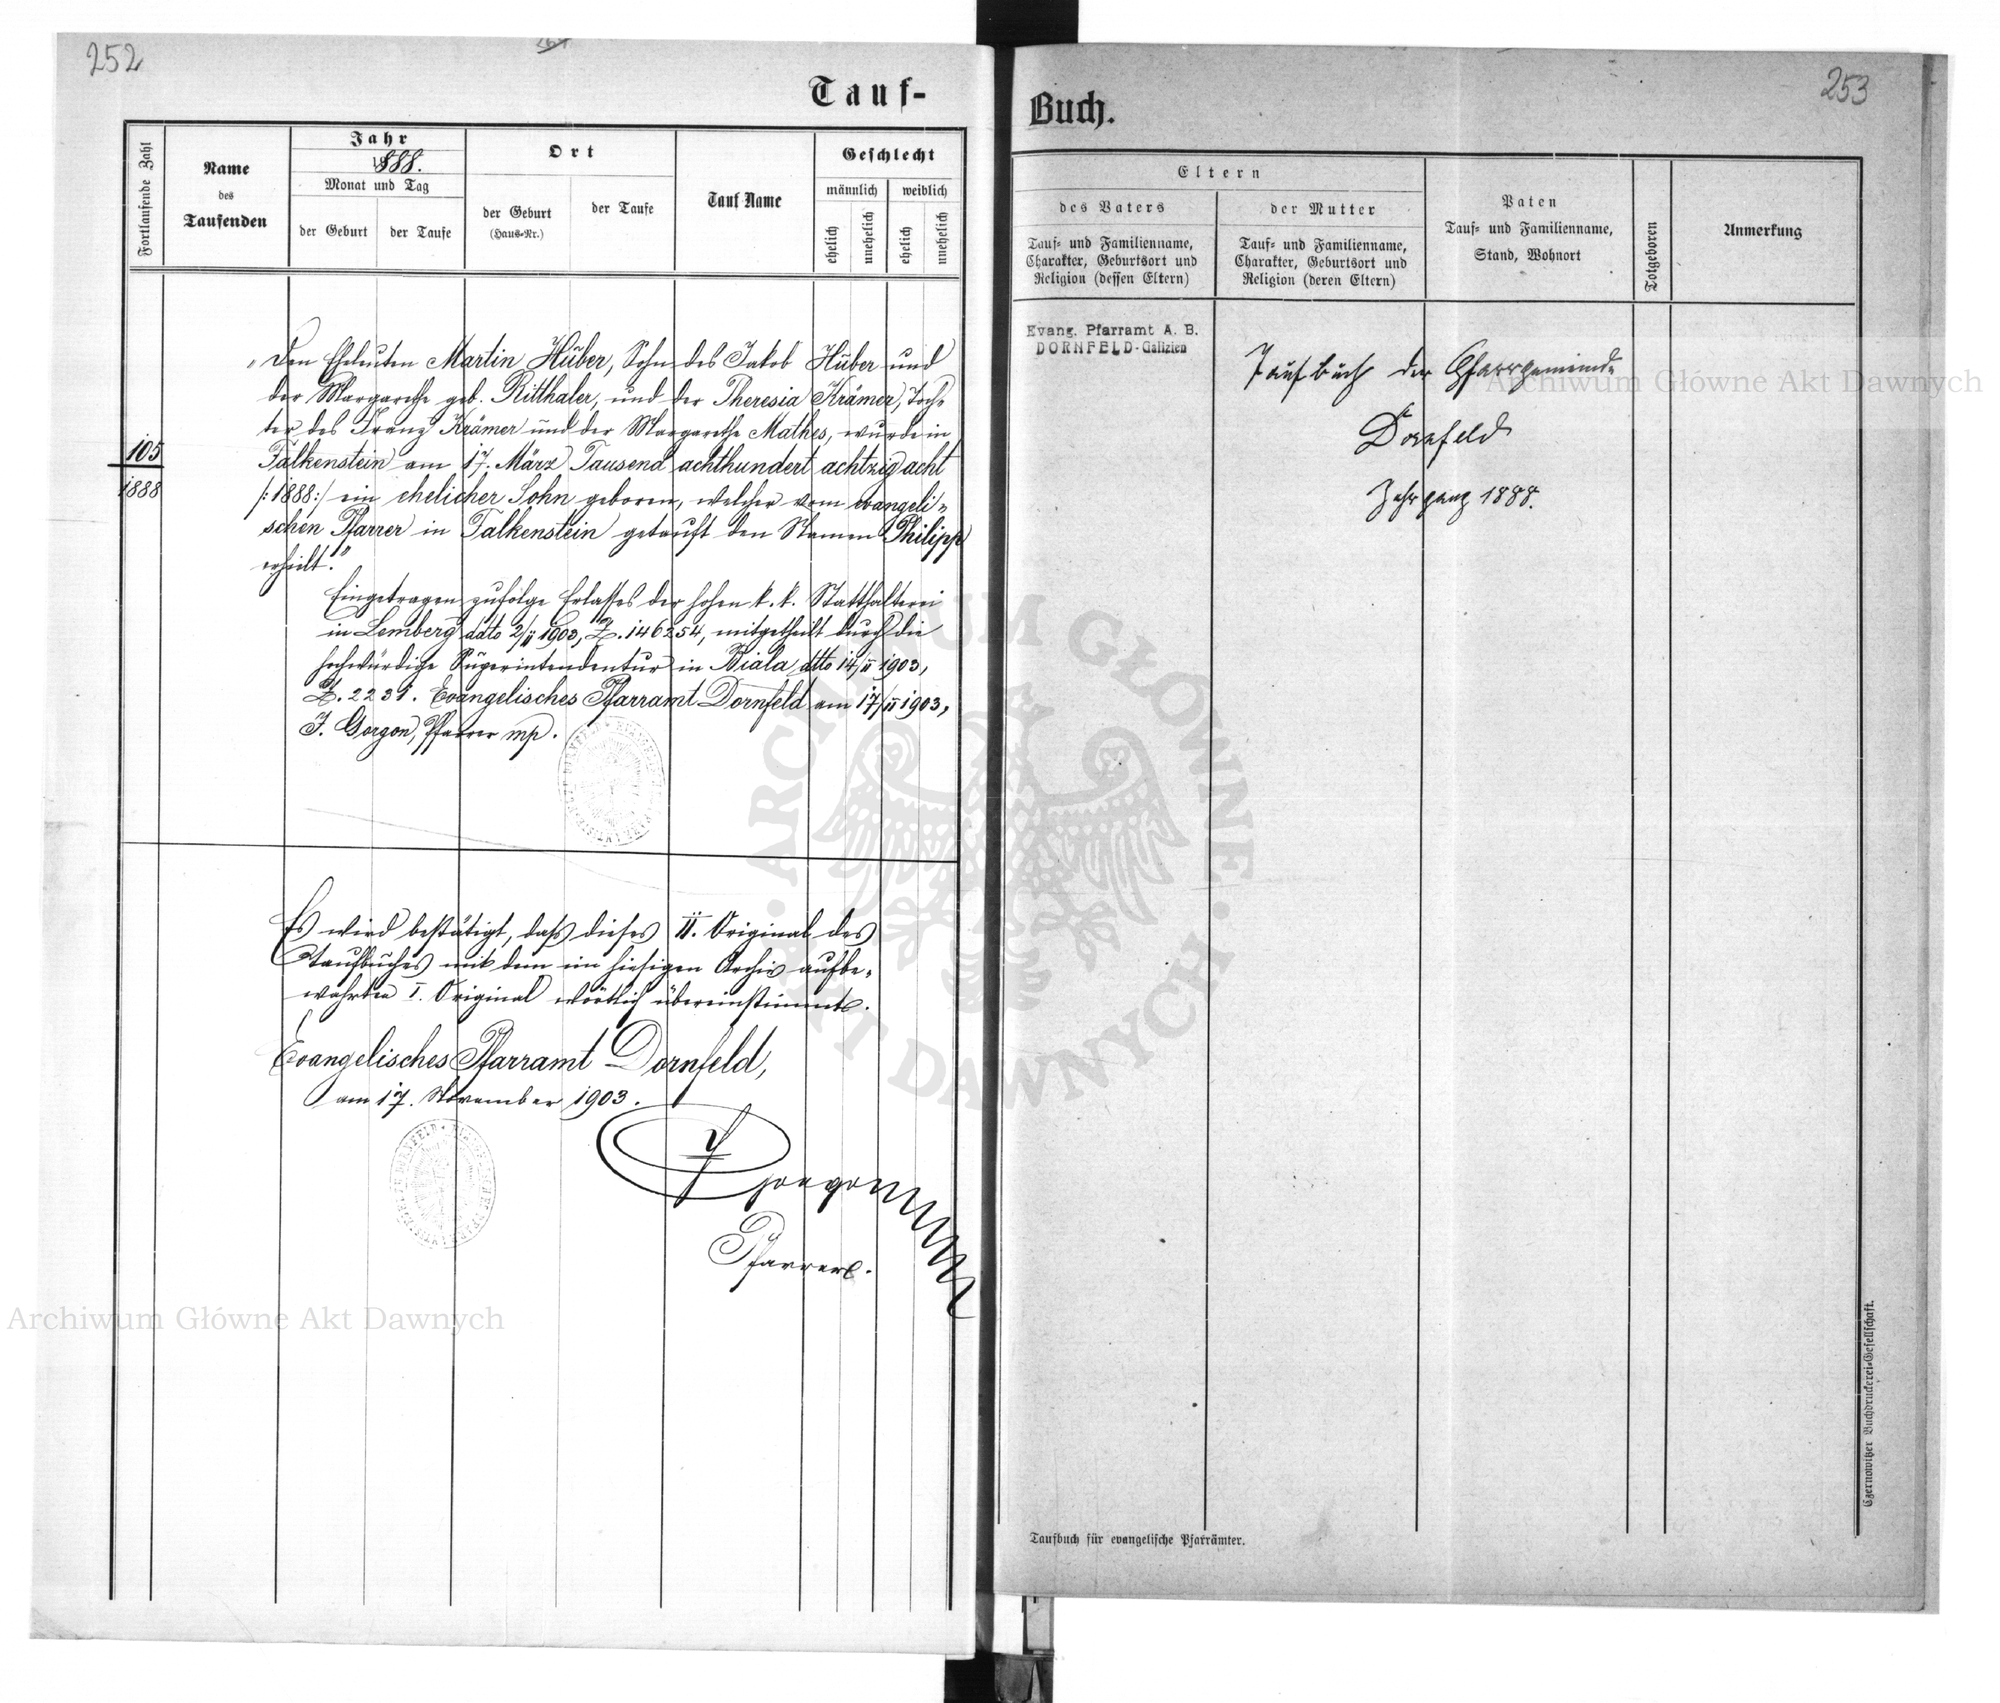 252
Tauf-
Fortlaufende Zahl
Name
des
Taufenden
Jahr
1888.
Monat und Tag
der Geburt
der Taufe
Ort
der Geburt
(Haus-Nr.)
der Taufe
Tauf Name
Geschlecht
männlich
weiblich
ehelich
unehelich
ehelich
unehelich
105
1888
„Den Eheleuten Martin Huber, Sohn des Jakob Huber und
der Margarethe geb. Ritthaler, und der Theresia Krämer, Toch-
ter des Franz Krämer und der Margarethe Mathes, wurde in
Falkenstein am 17. März Tausend achthundert achtzig acht
/:1888:/ ein ehelicher Sohn geboren, welcher vom evangeli-
schen Pfarrer in Falkenstein getauft den Namen Philipp
erhielt."
Eingetragen zufolge Erlasses der hohen k. k. Statthalterei
in Lemberg ddto 2/11 1903, Z. 146254, mitgetheilt durch die
hochwürdige Superintendentur in Biala dtto 14/11 1903,
Z. 2231. Evangelisches Pfarramt Dornfeld am 17/11 1903,
J. Gorgon, Pfarrer mp.
Es wird bestätigt, daß dieses II. Original des
Taufbuches mit dem im hiesigen Archiv aufbe-
wahrten I. Original wörtlich übereinstimmt.
Evangelisches Pfarramt Dornfeld,
am 17. November 1903.
J Gorgon
Pfarrer.
253
Buch.
Eltern
des Vaters
Tauf- und Familienname,
Charakter, Geburtsort und
Religion (dessen Eltern)
der Mutter
Tauf- und Familienname,
Charakter, Geburtsort und
Religion (deren Eltern)
Paten
Tauf- und Familienname,
Stand, Wohnort
Totgeboren
Anmerkung
Evang. Pfarramt A. B.
DORNFELD-Galizien
Taufbuch der Pfarrgemeinde
Dornfeld
Jahrgang 1888.
Taufbuch für evangelische Pfarrämter.
Czernowitzer Buchdruckerei-Gesellschaft.
Archiwum Główne Akt Dawnych
Archiwum Główne Akt Dawnych
ARCHIWUM GŁÓWNE AKT DAWNYCH